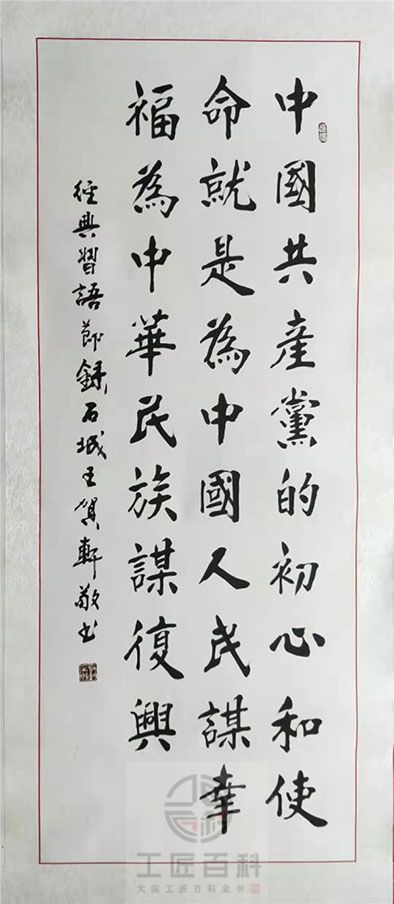 中國共產黨的初心和使
命就是為中國人民謀幸
福為中華民族謀復興
經典習語節錄石城王賀軒敬书
工匠百科
大国工匠百科全书